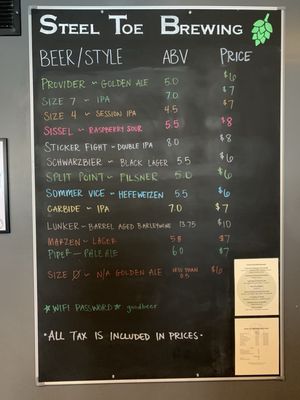 Steel Toe Brewing
BEER/STYLE ABV PRICE
PROVIDER ~ GOLDEN ALE 5.0 $6
SIZE 7 ~ IPA 7.0 $7
SIZE 4 ~ SESSION IPA 4.5 $7
SISSEL ~ RASPBERRY SOUR 5.5 $8
STICKER FIGHT ~ DOUBLE IPA 8.0 $8
SCHWARZBIER ~ BLACK LAGER 5.5 $6
SPLIT POINT ~ PILSNER 5.0 $6
SOMMER VICE ~ HEFEWEIZEN 5.5 $6
CARBIDE ~ IPA 7.0 $7
LUNKER ~ BARREL AGED BARLEYWINE 13.75 $10
MARZEN ~ LAGER 5.8 $7
PIPER ~ PALE ALE 6.0 $7
SIZE Ø ~ N/A GOLDEN ALE LESS THAN 0.5 $6
*WIFI PASSWORD*: goodbeer
*ALL TAX IS INCLUDED IN PRICES*